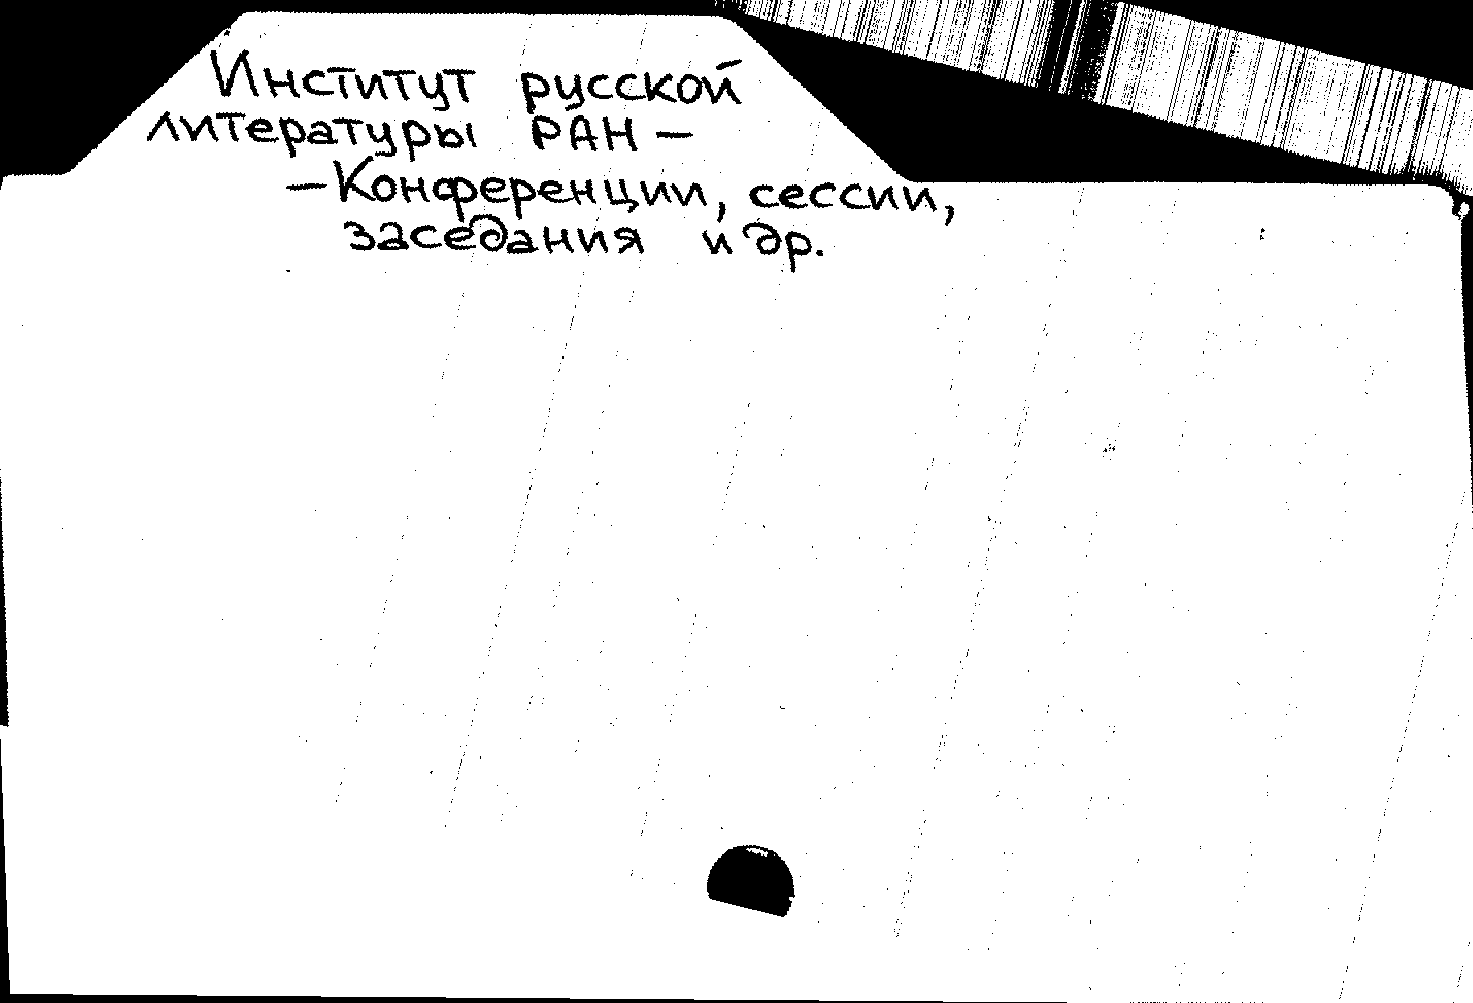 Институт русской
литературы РАН —
— Конференции, сессии,
заседания и др.